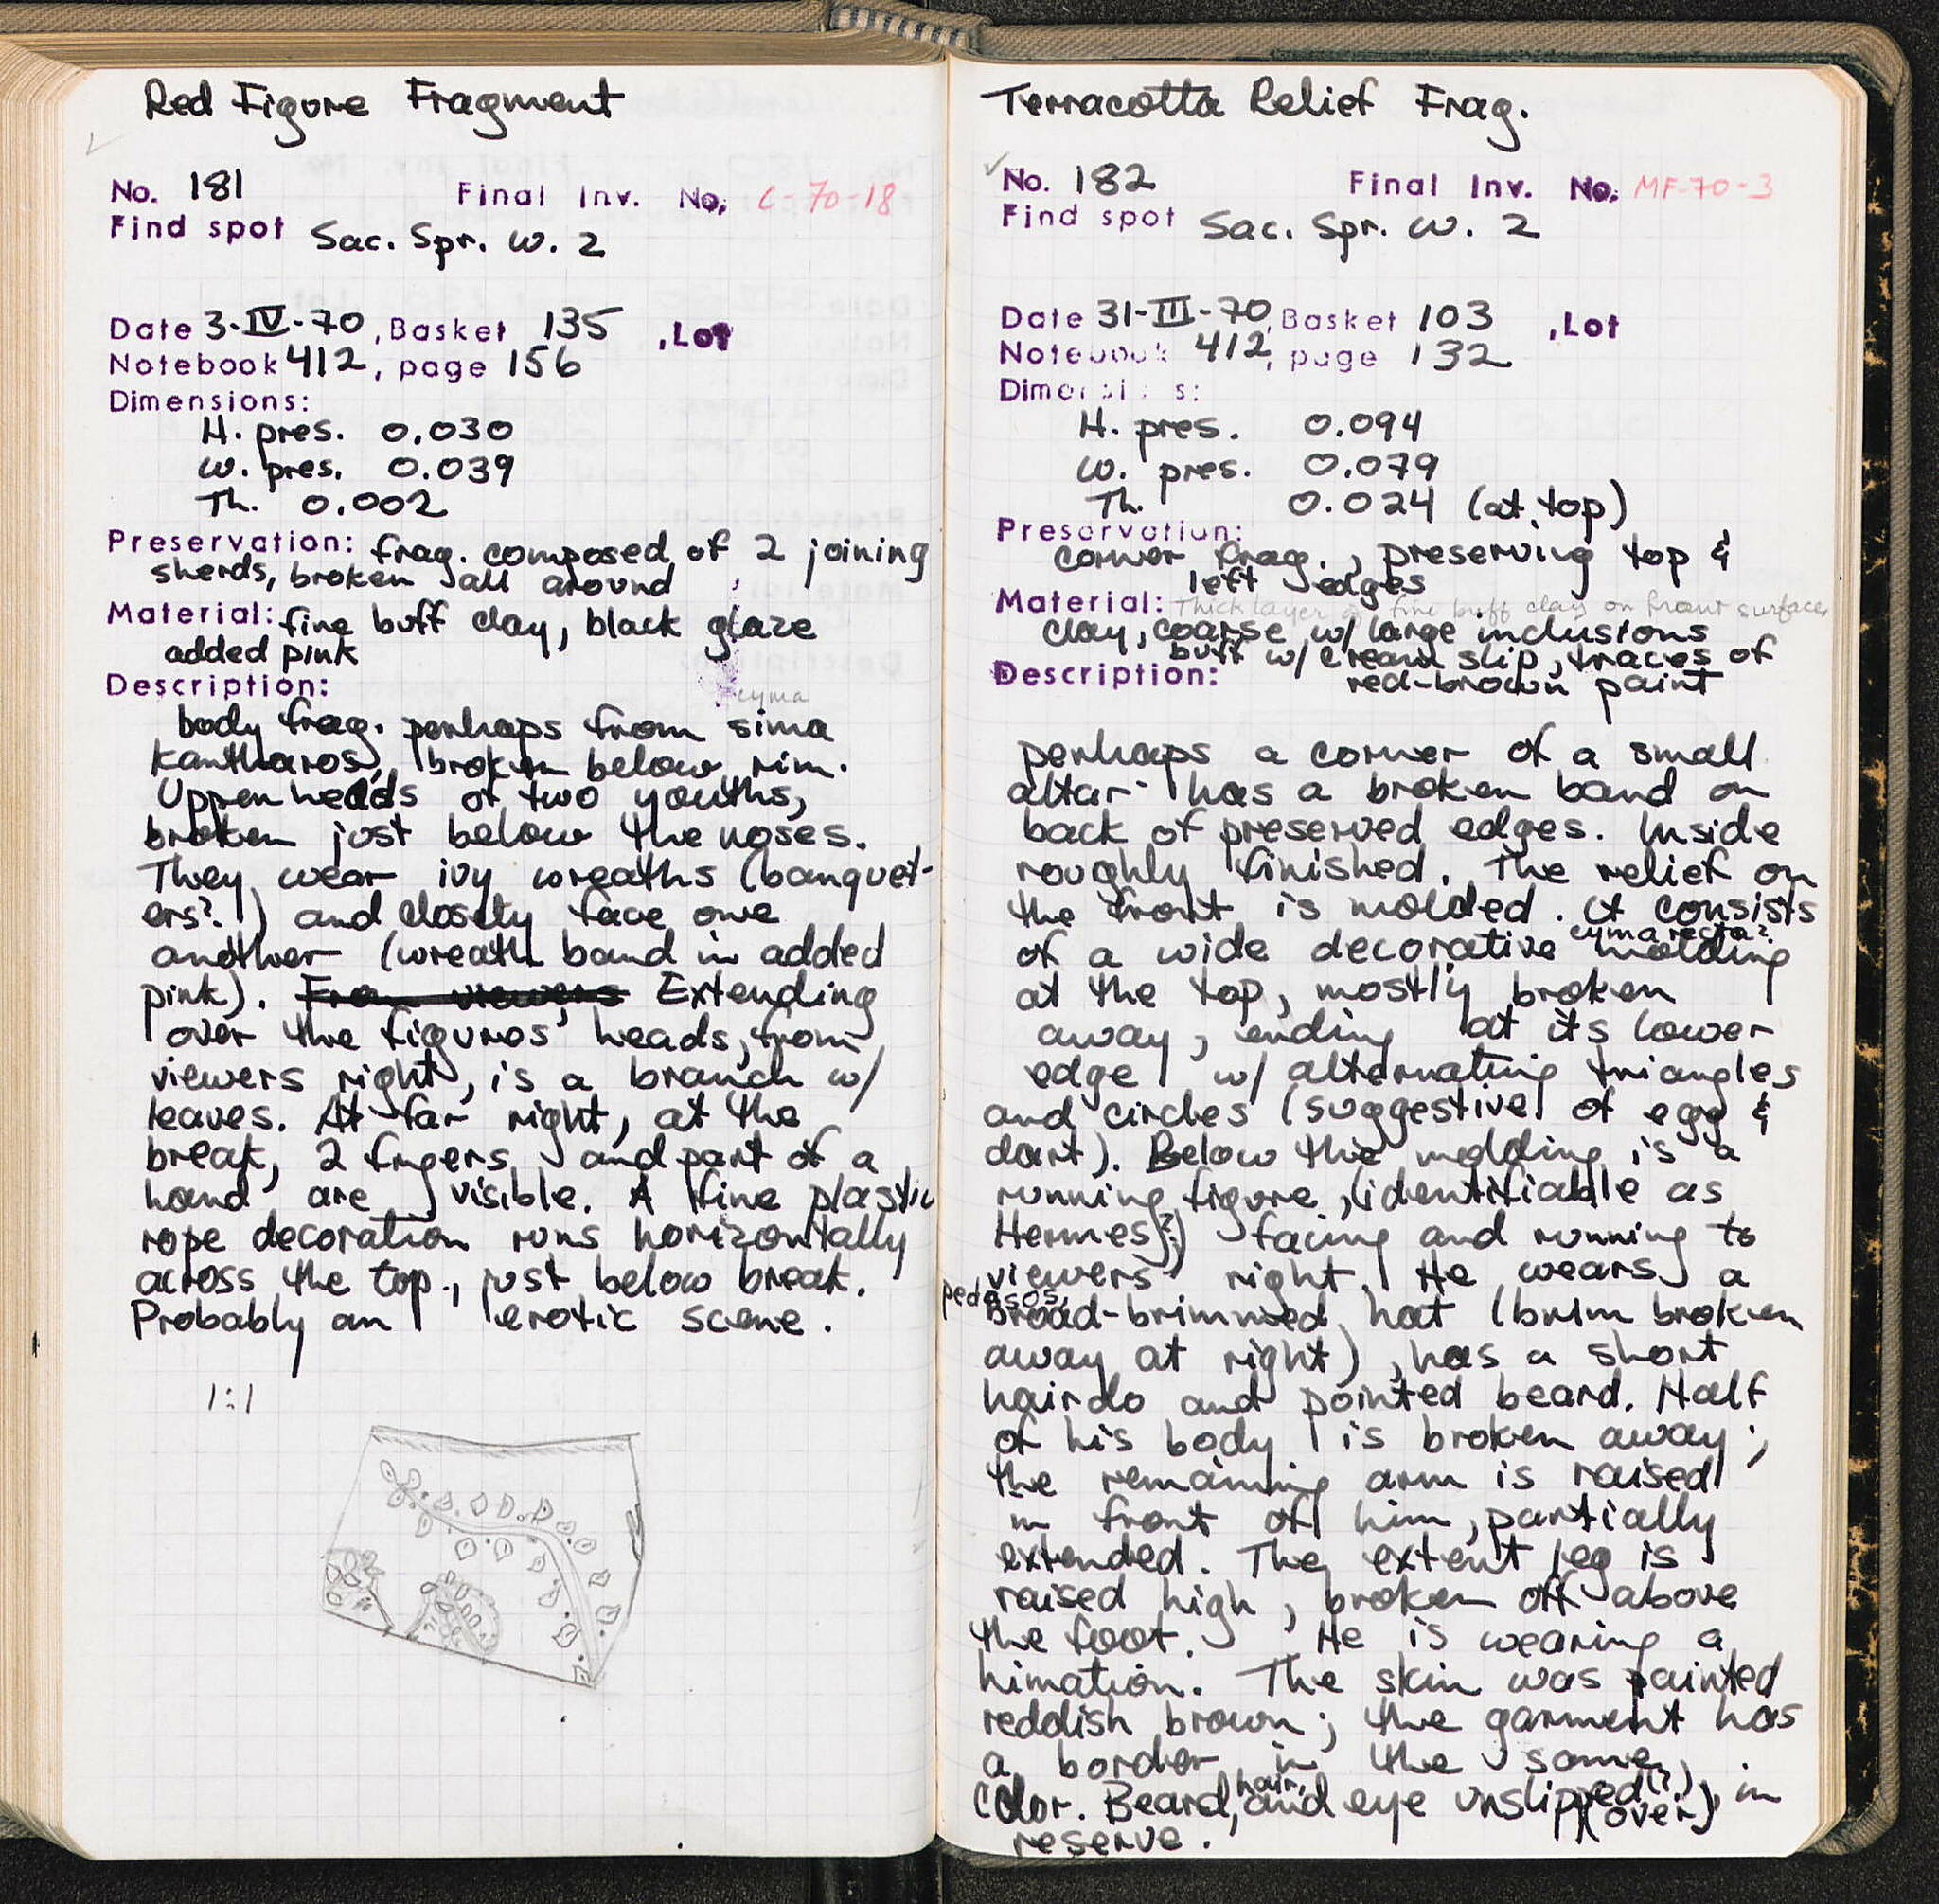 Red Figure Fragment
No. 181 Final Inv. No. C-70-18
Find spot Sac. Spr. W. 2
Date 3-IV-70, Basket 135 , Lot
Notebook 412, page 156
Dimensions:
H. pres. 0.030
W. pres. 0.039
Th. 0.002
Preservation: frag. composed of 2 joining
sherds, broken all around
Material: fine buff clay, black glaze
added pink
Description:
cyma
body frag. perhaps from sima
kantharos, broken below rim.
Upper heads of two youths,
broken just below the noses.
They wear ivy wreaths (banquet-
ers?) and closely face one
another (wreath band in added
pink). From viewers Extending
over the figures' heads, from
viewers right, is a branch w/
leaves. At far right, at the
break, 2 fingers and part of a
hand are visible. A fine plastic
rope decoration runs horizontally
across the top, just below break.
Probably an erotic scene.
1:1
Terracotta Relief Frag.
No. 182 Final Inv. No. MF-70-3
Find spot Sac. Spr. W. 2
Date 31-III-70, Basket 103 , Lot
Notebook 412, page 132
Dimensions:
H. pres. 0.094
W. pres. 0.079
Th. 0.024 (at top)
Preservation:
corner frag., preserving top &
left edges
Material: Thick layer of fine buff clay on front surfaces
clay, coarse w/ large inclusions
buff w/ cream slip, traces of
Description: red-brown paint
perhaps a corner of a small
altar - has a broken band on
back of preserved edges. Inside
roughly finished. The relief on
the front is molded. It consists
cyma recta?
of a wide decorative molding
at the top, mostly broken
away, ending at its lower
edge w/ alternating triangles
and circles (suggestive of egg &
dart). Below the molding is a
running figure, (identifiable as
Hermes?) facing and running to
viewers right. He wears a
pedasos,
broad-brimmed hat (brim broken
away at right), has a short
hairdo and pointed beard. Half
of his body is broken away;
the remaining arm is raised
in front of him, partially
extended. The extent leg is
raised high, broken off above
the foot. He is wearing a
himation. The skin was painted
reddish brown; the garment has
a border in the same
color. Beard, hair, and eye unslipped(?), in
reserve. (over)